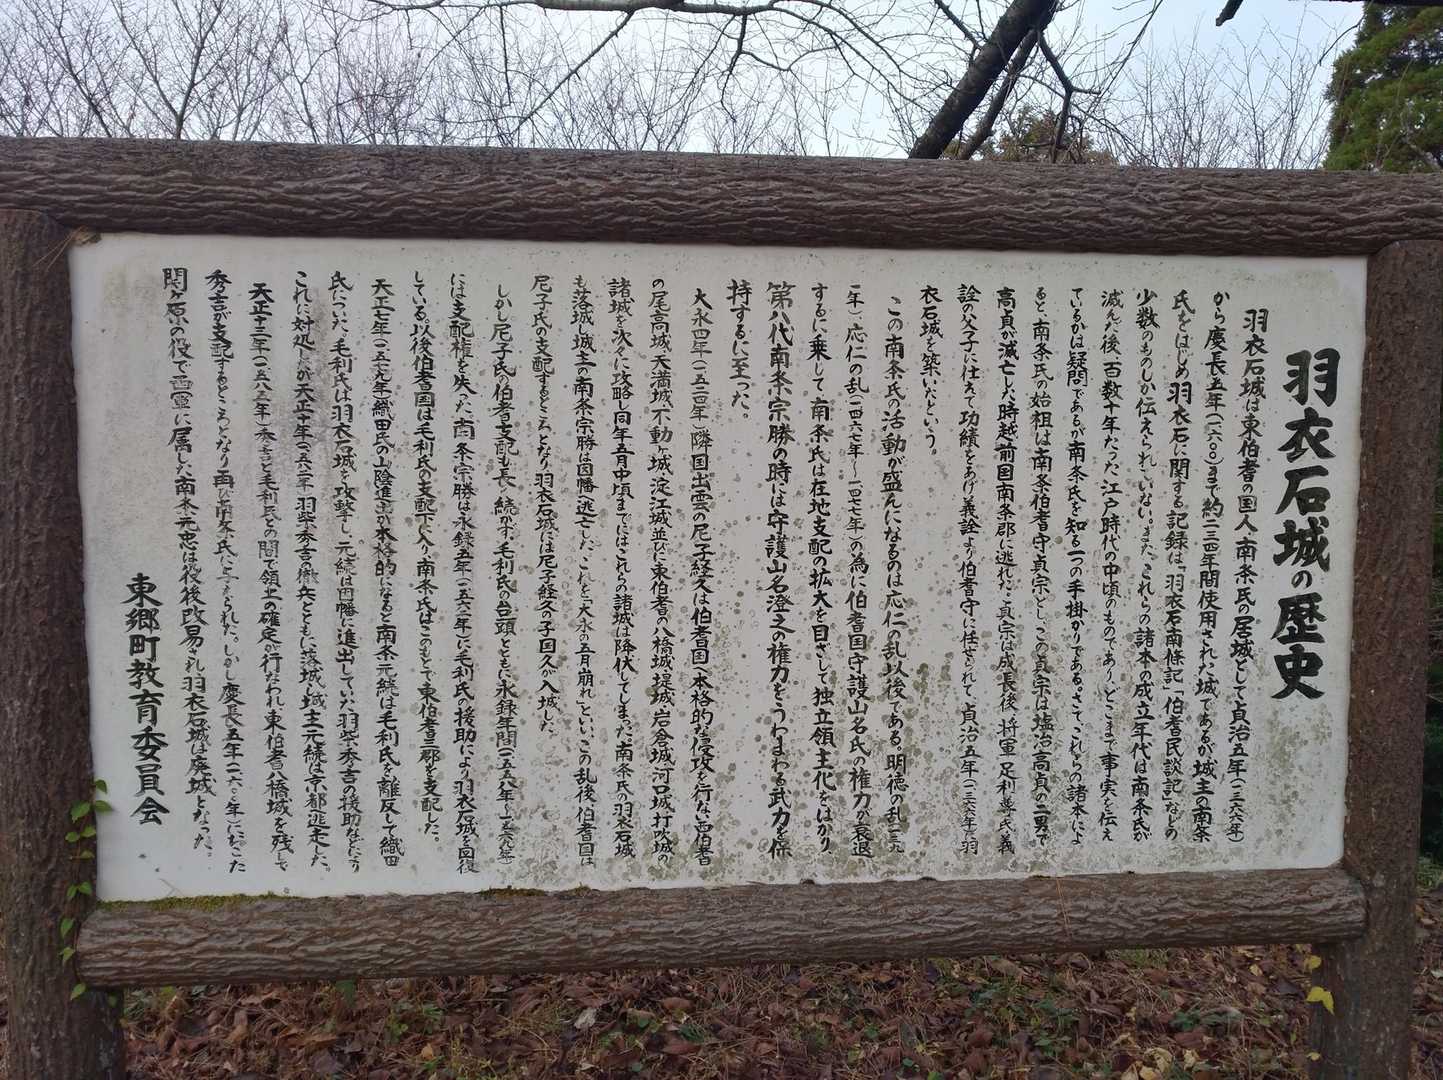 羽衣石城の歴史
羽衣石城は東伯耆の国人、南条氏の居城として貞治五年(一三六六年)
から慶長五年(一六〇〇)まで約二三四年間使用された城であるが城主の南条
氏をはじめ羽衣石に関する記録は「羽衣石南條記」「伯耆民談記」などの
少数のものしか伝えられていない。また、これらの諸本の成立年代は南条氏が
滅んだ後一百数十年たった江戸時代の中頃のものであり、どこまで事実を伝え
ているかは疑問であるが南条氏を知る一つの手掛かりである。さて、これらの諸本によ
ると、南条氏の始祖は南条伯耆守貞宗とし、この貞宗は塩冶高貞の二男で
高貞が滅亡した時越前国南条郡に逃れた。貞宗は成長後、将軍足利尊氏、義
詮の父子に仕えて功績をあげ義詮より伯耆守に任ぜられて、貞治五年(一三六六年)羽
衣石城を築いたという。
この南条氏の活動が盛んになるのは応仁の乱以後である。明徳の乱(一三九
一年)、応仁の乱(一四六七年～一四七七年)の為に伯耆国守護山名氏の権力が衰退
するに乗じて南条氏は在地支配の拡大を目ざして独立領主化をはかり
第八代南条宗勝の時には守護山名澄之の権力をうわまわる武力を保
持するに至った。
大永四年(一五二四年)隣国出雲の尼子経久は伯耆国へ本格的な侵攻を行ない西伯耆
の尾高城、天満城、不動ヶ城、淀江城並びに東伯耆の八橋城、堤城、岩倉城、河口城、打吹城の
諸城を次々に攻略し同年五月中頃までにはこれらの諸城は降伏してしまった。南条氏の羽衣石城
も落城し城主の南条宗勝は因幡へ逃亡した。これを、“大永の五月崩れ”といい、この乱後、伯耆国は
尼子氏の支配するところとなり羽衣石城には尼子経久の子国久が入城した。
しかし尼子氏の伯耆支配も長く続かず、毛利氏の台頭とともに永録年間(一五五八年～一五六九年)
には支配権を失った。南条宗勝は永録五年(一五六二年)に毛利氏の援助により羽衣石城を回復
している。以後伯耆国は毛利氏の支配下に入り南条氏はこのもとで東伯耆三郡を支配した。
天正七年(一五七九年)織田氏の山陰進出が本格的になると南条元続は毛利氏を離反して織田
氏についた。毛利氏は羽衣石城を攻撃し、元続は因幡に進出していた羽柴秀吉の援助などにより
これに対処したが天正十年(一五八二年)羽柴秀吉の撤兵とともに落城し城主元続は京都へ逃走した。
天正十三年(一五八五年)秀吉と毛利氏との間で領土の確定が行なわれ、東伯耆は八橋城を残して
秀吉が支配するところとなり再び南条氏に与えられた。しかし慶長五年(一六〇〇年)におこった
関ヶ原の役で西軍に属した南条元忠は役後改易され羽衣石城は廃城となった。
東郷町教育委員会